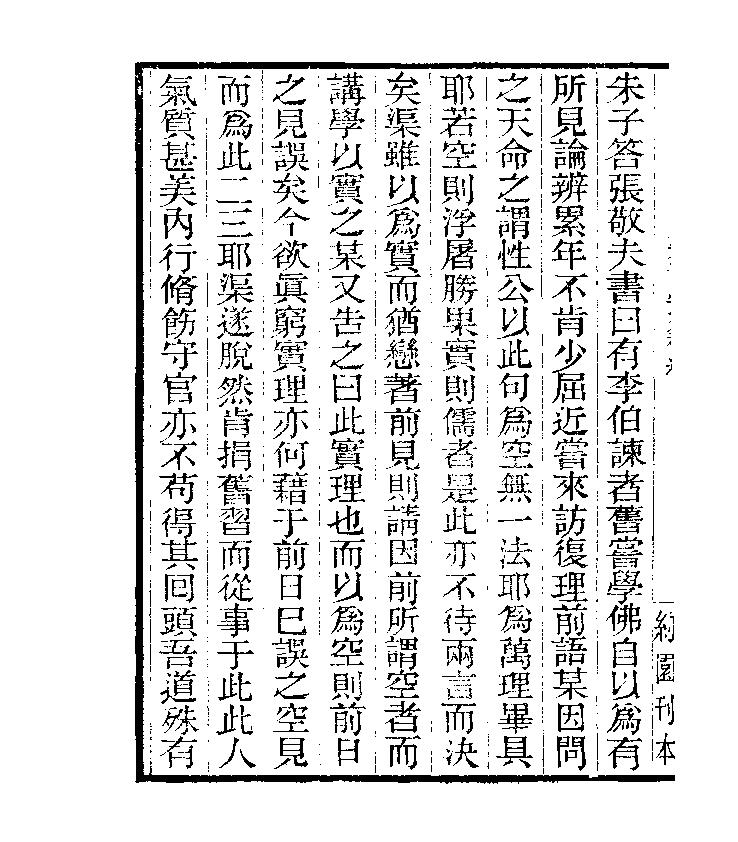 朱子答張敬夫書曰有李伯諫者舊嘗學佛自以爲有
所見論辨累年不肯少屈近嘗來訪復理前語某因問
之天命之謂性公以此句爲空無一法耶爲萬理畢具
耶若空則浮屠勝果實則儒者是此亦不待兩言而決
矣渠雖以爲實而猶戀著前見則請因前所謂空者而
講學以實之某又告之曰此實理也而以爲空則前日
之見誤矣今欲眞窮實理亦何藉于前日巳誤之空見
而爲此二三耶渠遂脫然肯捐舊習而從事于此此人
氣質甚美內行脩飭守官亦不苟得其回頭吾道殊有
約園刊本